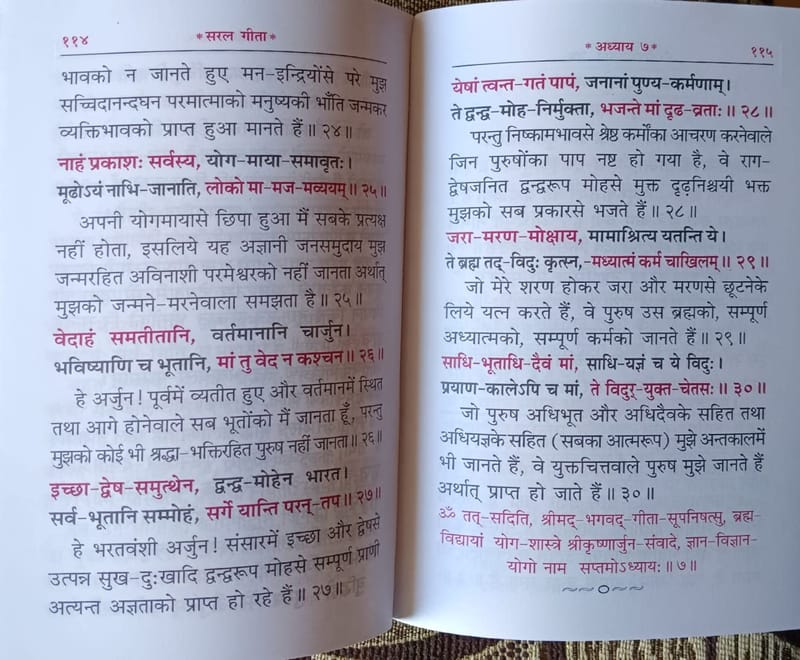 ११४
*सरल गीता*
भावको न जानते हुए मन-इन्द्रियोंसे परे मुझ
सच्चिदानन्दघन परमात्माको मनुष्यकी भाँति जन्मकर
व्यक्तिभावको प्राप्त हुआ मानते हैं॥ २४॥
नाहं प्रकाशः सर्वस्य, योग-माया-समावृतः।
मूढोऽयं नाभि-जानाति, लोको मा-मज-मव्ययम्॥ २५॥
अपनी योगमायासे छिपा हुआ मैं सबके प्रत्यक्ष
नहीं होता, इसलिये यह अज्ञानी जनसमुदाय मुझ
जन्मरहित अविनाशी परमेश्वरको नहीं जानता अर्थात्
मुझको जन्मने-मरनेवाला समझता है॥ २५॥
वेदाहं समतीतानि, वर्तमानानि चार्जुन।
भविष्याणि च भूतानि, मां तु वेद न कश्चन॥ २६॥
हे अर्जुन! पूर्वमें व्यतीत हुए और वर्तमानमें स्थित
तथा आगे होनेवाले सब भूतोंको मैं जानता हूँ, परन्तु
मुझको कोई भी श्रद्धा-भक्तिरहित पुरुष नहीं जानता॥ २६॥
इच्छा-द्वेष-समुत्थेन, द्वन्द्व-मोहेन भारत।
सर्व-भूतानि सम्मोहं, सर्गे यान्ति परन्-तप॥ २७॥
हे भरतवंशी अर्जुन! संसारमें इच्छा और द्वेषसे
उत्पन्न सुख-दुःखादि द्वन्द्वरूप मोहसे सम्पूर्ण प्राणी
अत्यन्त अज्ञताको प्राप्त हो रहे हैं॥ २७॥
*अध्याय ७*
११५
येषां त्वन्त-गतं पापं, जनानां पुण्य-कर्मणाम्।
ते द्वन्द्व-मोह-निर्मुक्ता, भजन्ते मां दृढ-व्रताः॥ २८॥
परन्तु निष्कामभावसे श्रेष्ठ कर्मोंका आचरण करनेवाले
जिन पुरुषोंका पाप नष्ट हो गया है, वे राग-
द्वेषजनित द्वन्द्वरूप मोहसे मुक्त दृढ़निश्चयी भक्त
मुझको सब प्रकारसे भजते हैं॥ २८॥
जरा-मरण-मोक्षाय, मामाश्रित्य यतन्ति ये।
ते ब्रह्म तद्-विदुः कृत्स्न,-मध्यात्मं कर्म चाखिलम्॥ २९॥
जो मेरे शरण होकर जरा और मरणसे छूटनेके
लिये यत्न करते हैं, वे पुरुष उस ब्रह्मको, सम्पूर्ण
अध्यात्मको, सम्पूर्ण कर्मको जानते हैं॥ २९॥
साधि-भूताधि-दैवं मां, साधि-यज्ञं च ये विदुः।
प्रयाण-कालेऽपि च मां, ते विदुर्-युक्त-चेतसः॥ ३०॥
जो पुरुष अधिभूत और अधिदैवके सहित तथा
अधियज्ञके सहित (सबका आत्मरूप) मुझे अन्तकालमें
भी जानते हैं, वे युक्तचित्तवाले पुरुष मुझे जानते हैं
अर्थात् प्राप्त हो जाते हैं॥ ३०॥
ॐ तत्-सदिति, श्रीमद्-भगवद्-गीता-सूपनिषत्सु, ब्रह्म-
विद्यायां योग-शास्त्रे श्रीकृष्णार्जुन-संवादे, ज्ञान-विज्ञान-
योगो नाम सप्तमोऽध्यायः॥ ७॥